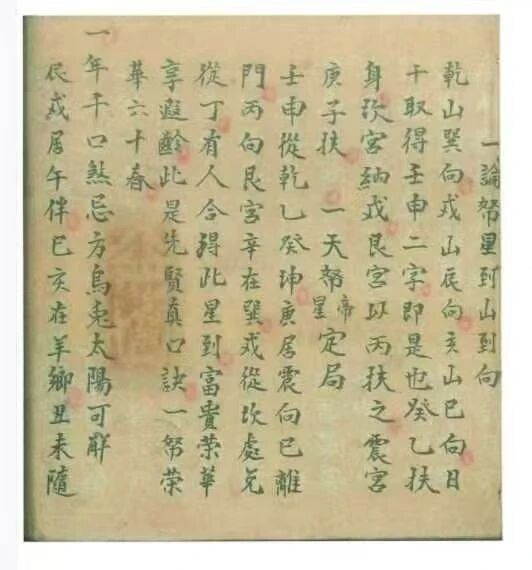 一論帑星到山到向
乾山巽向戌山辰向亥山巳向日
干取得壬申二字即是也癸乙扶
身坎宮納戊艮宮以丙扶之震宮
庚子扶 一天帑帝星定局
壬申從乾乙癸坤庚居震向巳離
門丙向艮宮辛在巽戊從坎處兌
從丁有人合得此星到富貴榮華
享遐齡此是先賢真口訣一帑榮
華六十春
一年干口煞忌方烏兎太陽可解
辰戌居午伴巳亥在羊鄉丑未隨